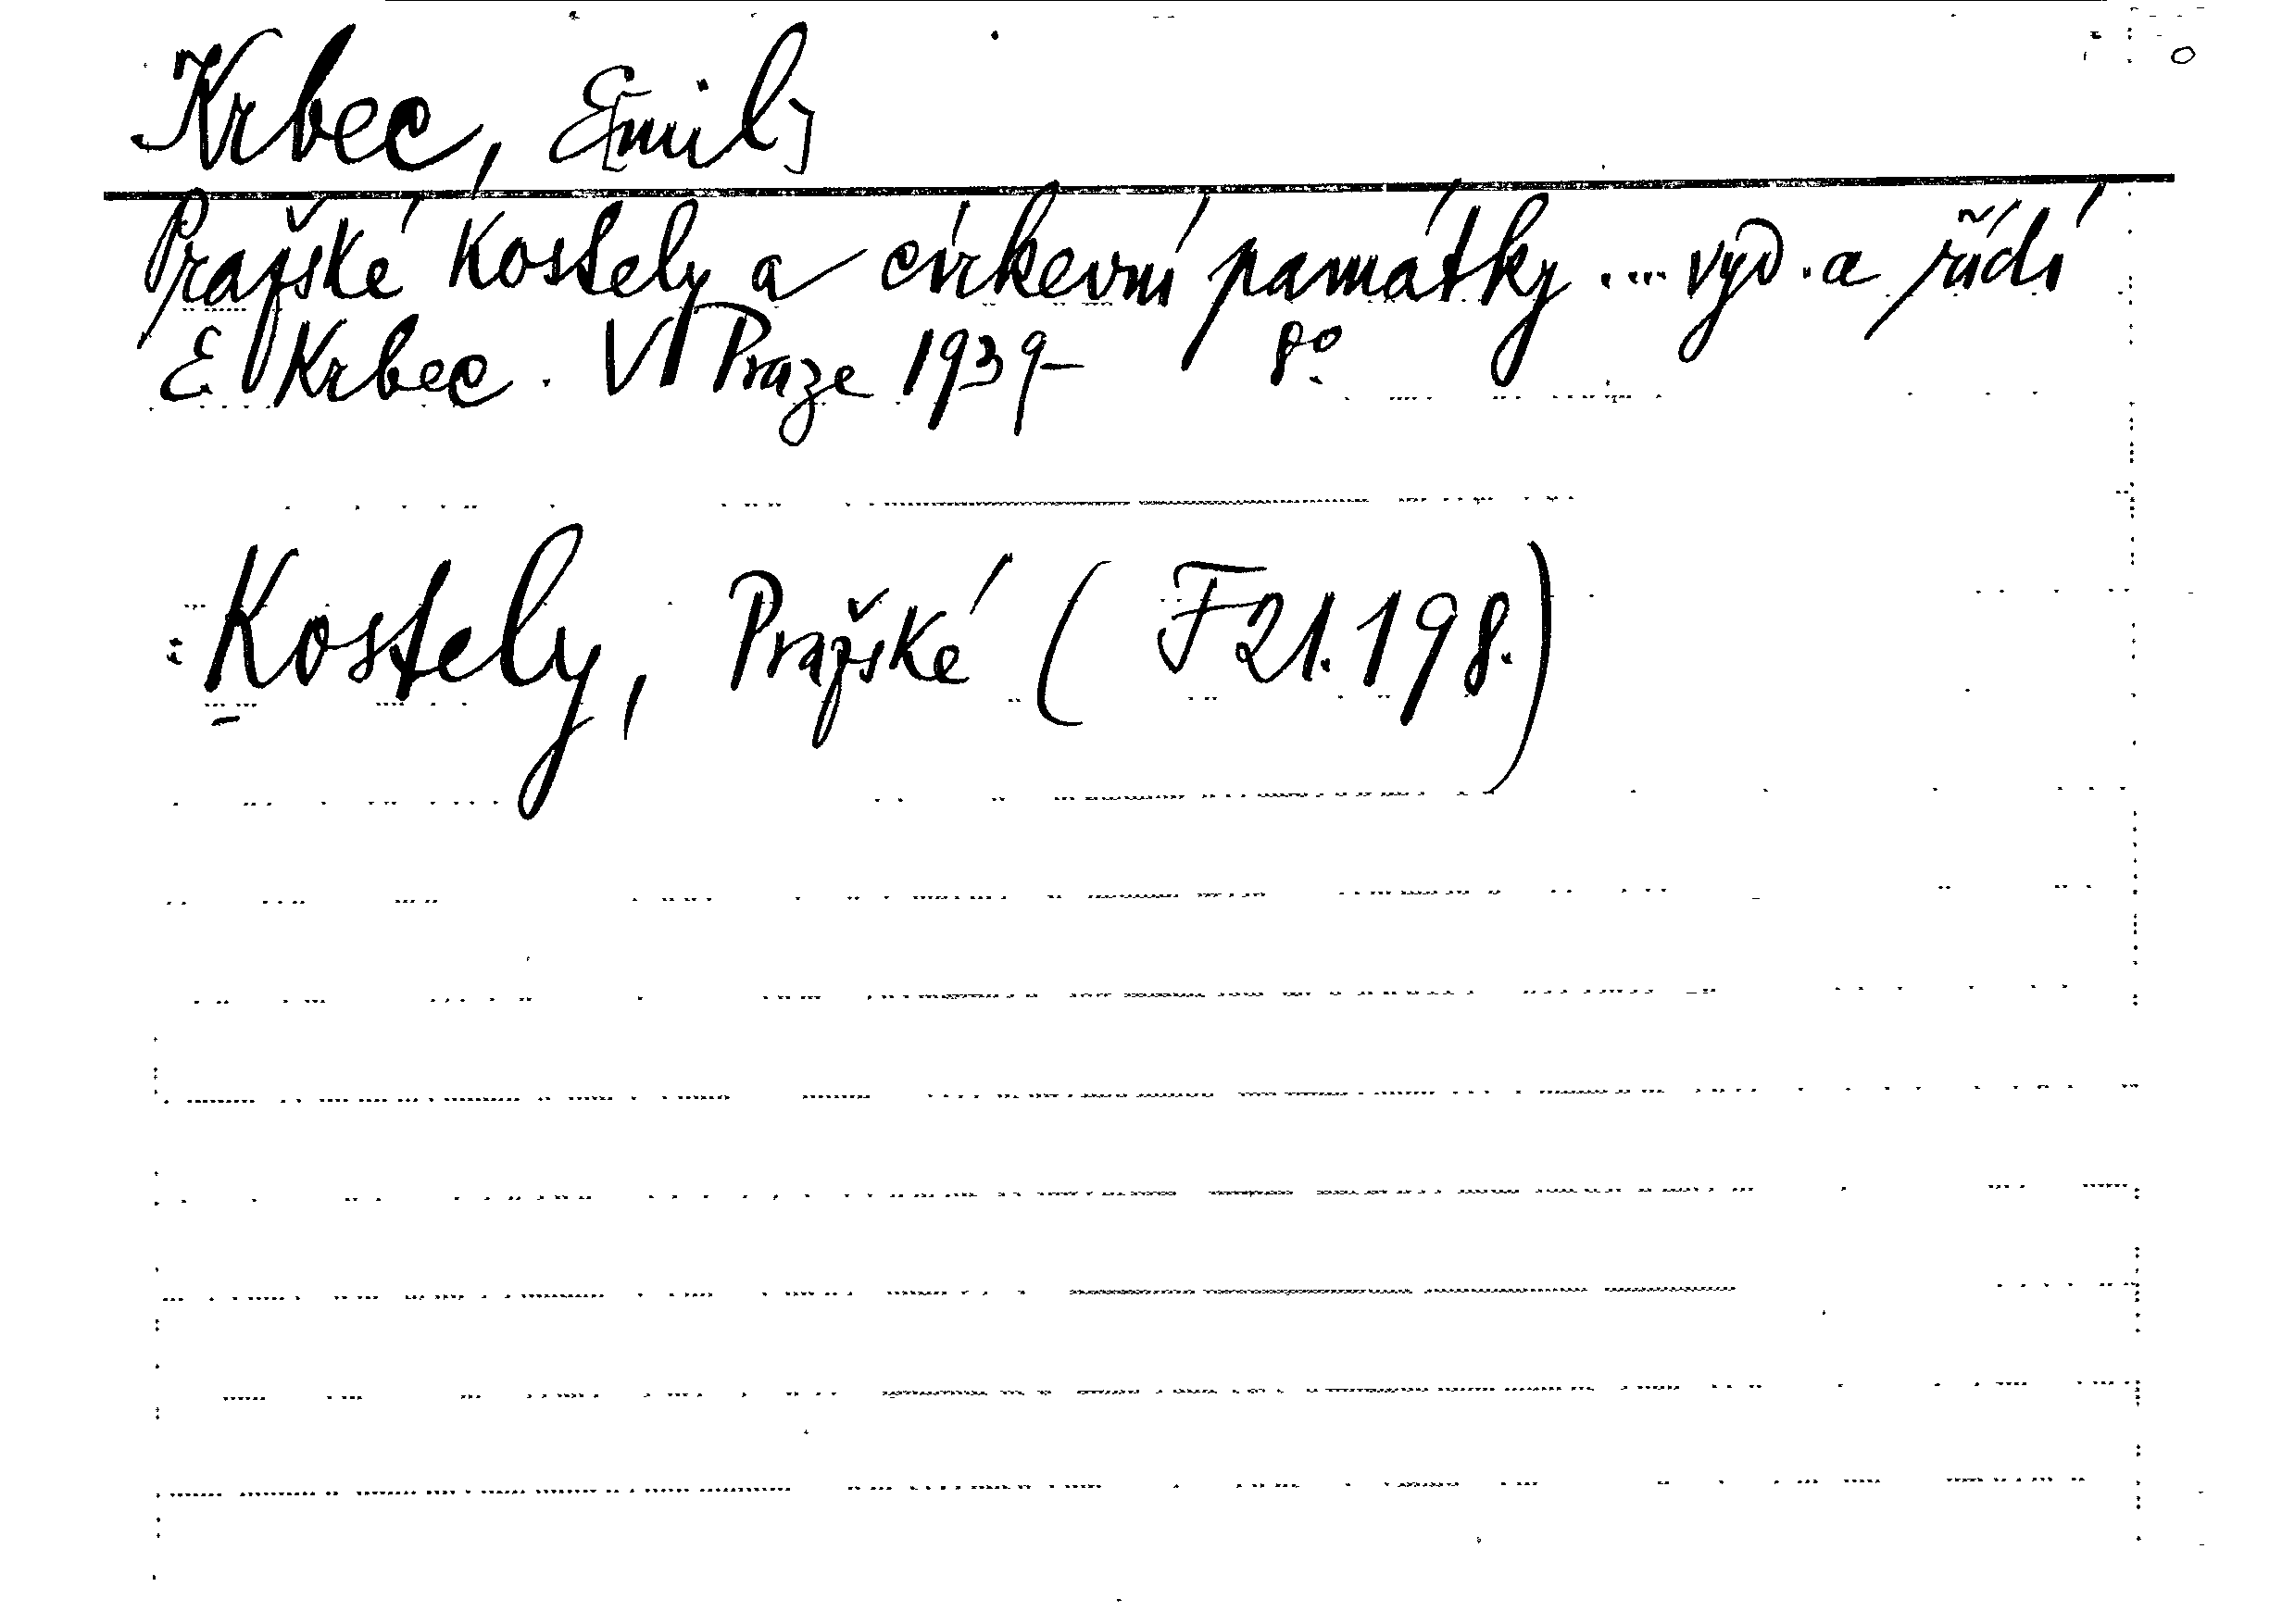 Krbec, E[mil]
Pražské kostely a církevní památky ... vyd. a řídí
E Krbec. V Praze 1939- 8°.
: Kostely, Pražské (F 21.198.)